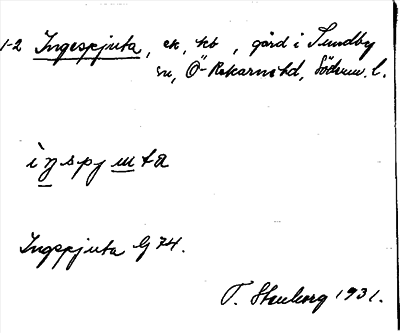 1-2 Ingespjuta, ek, kb, gård i Sundby
sn, Ö-Rekarne hd, Söderm. l.
ìŋspjɯta
Ingspjuta G 74.
T. Stenberg 1931.